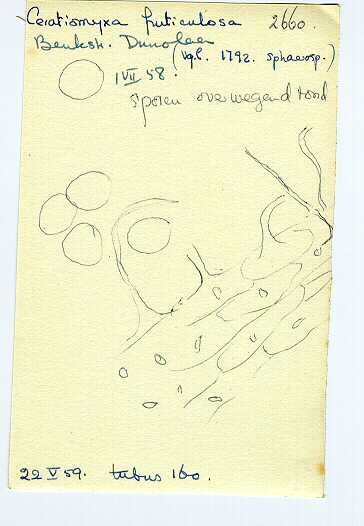 Ceratiomyxa fruticulosa 2660.
(vgl. 1792. sphaerosp.)
1 VII 58.
sporen overwegend rond
22 V 59. tubus 160.